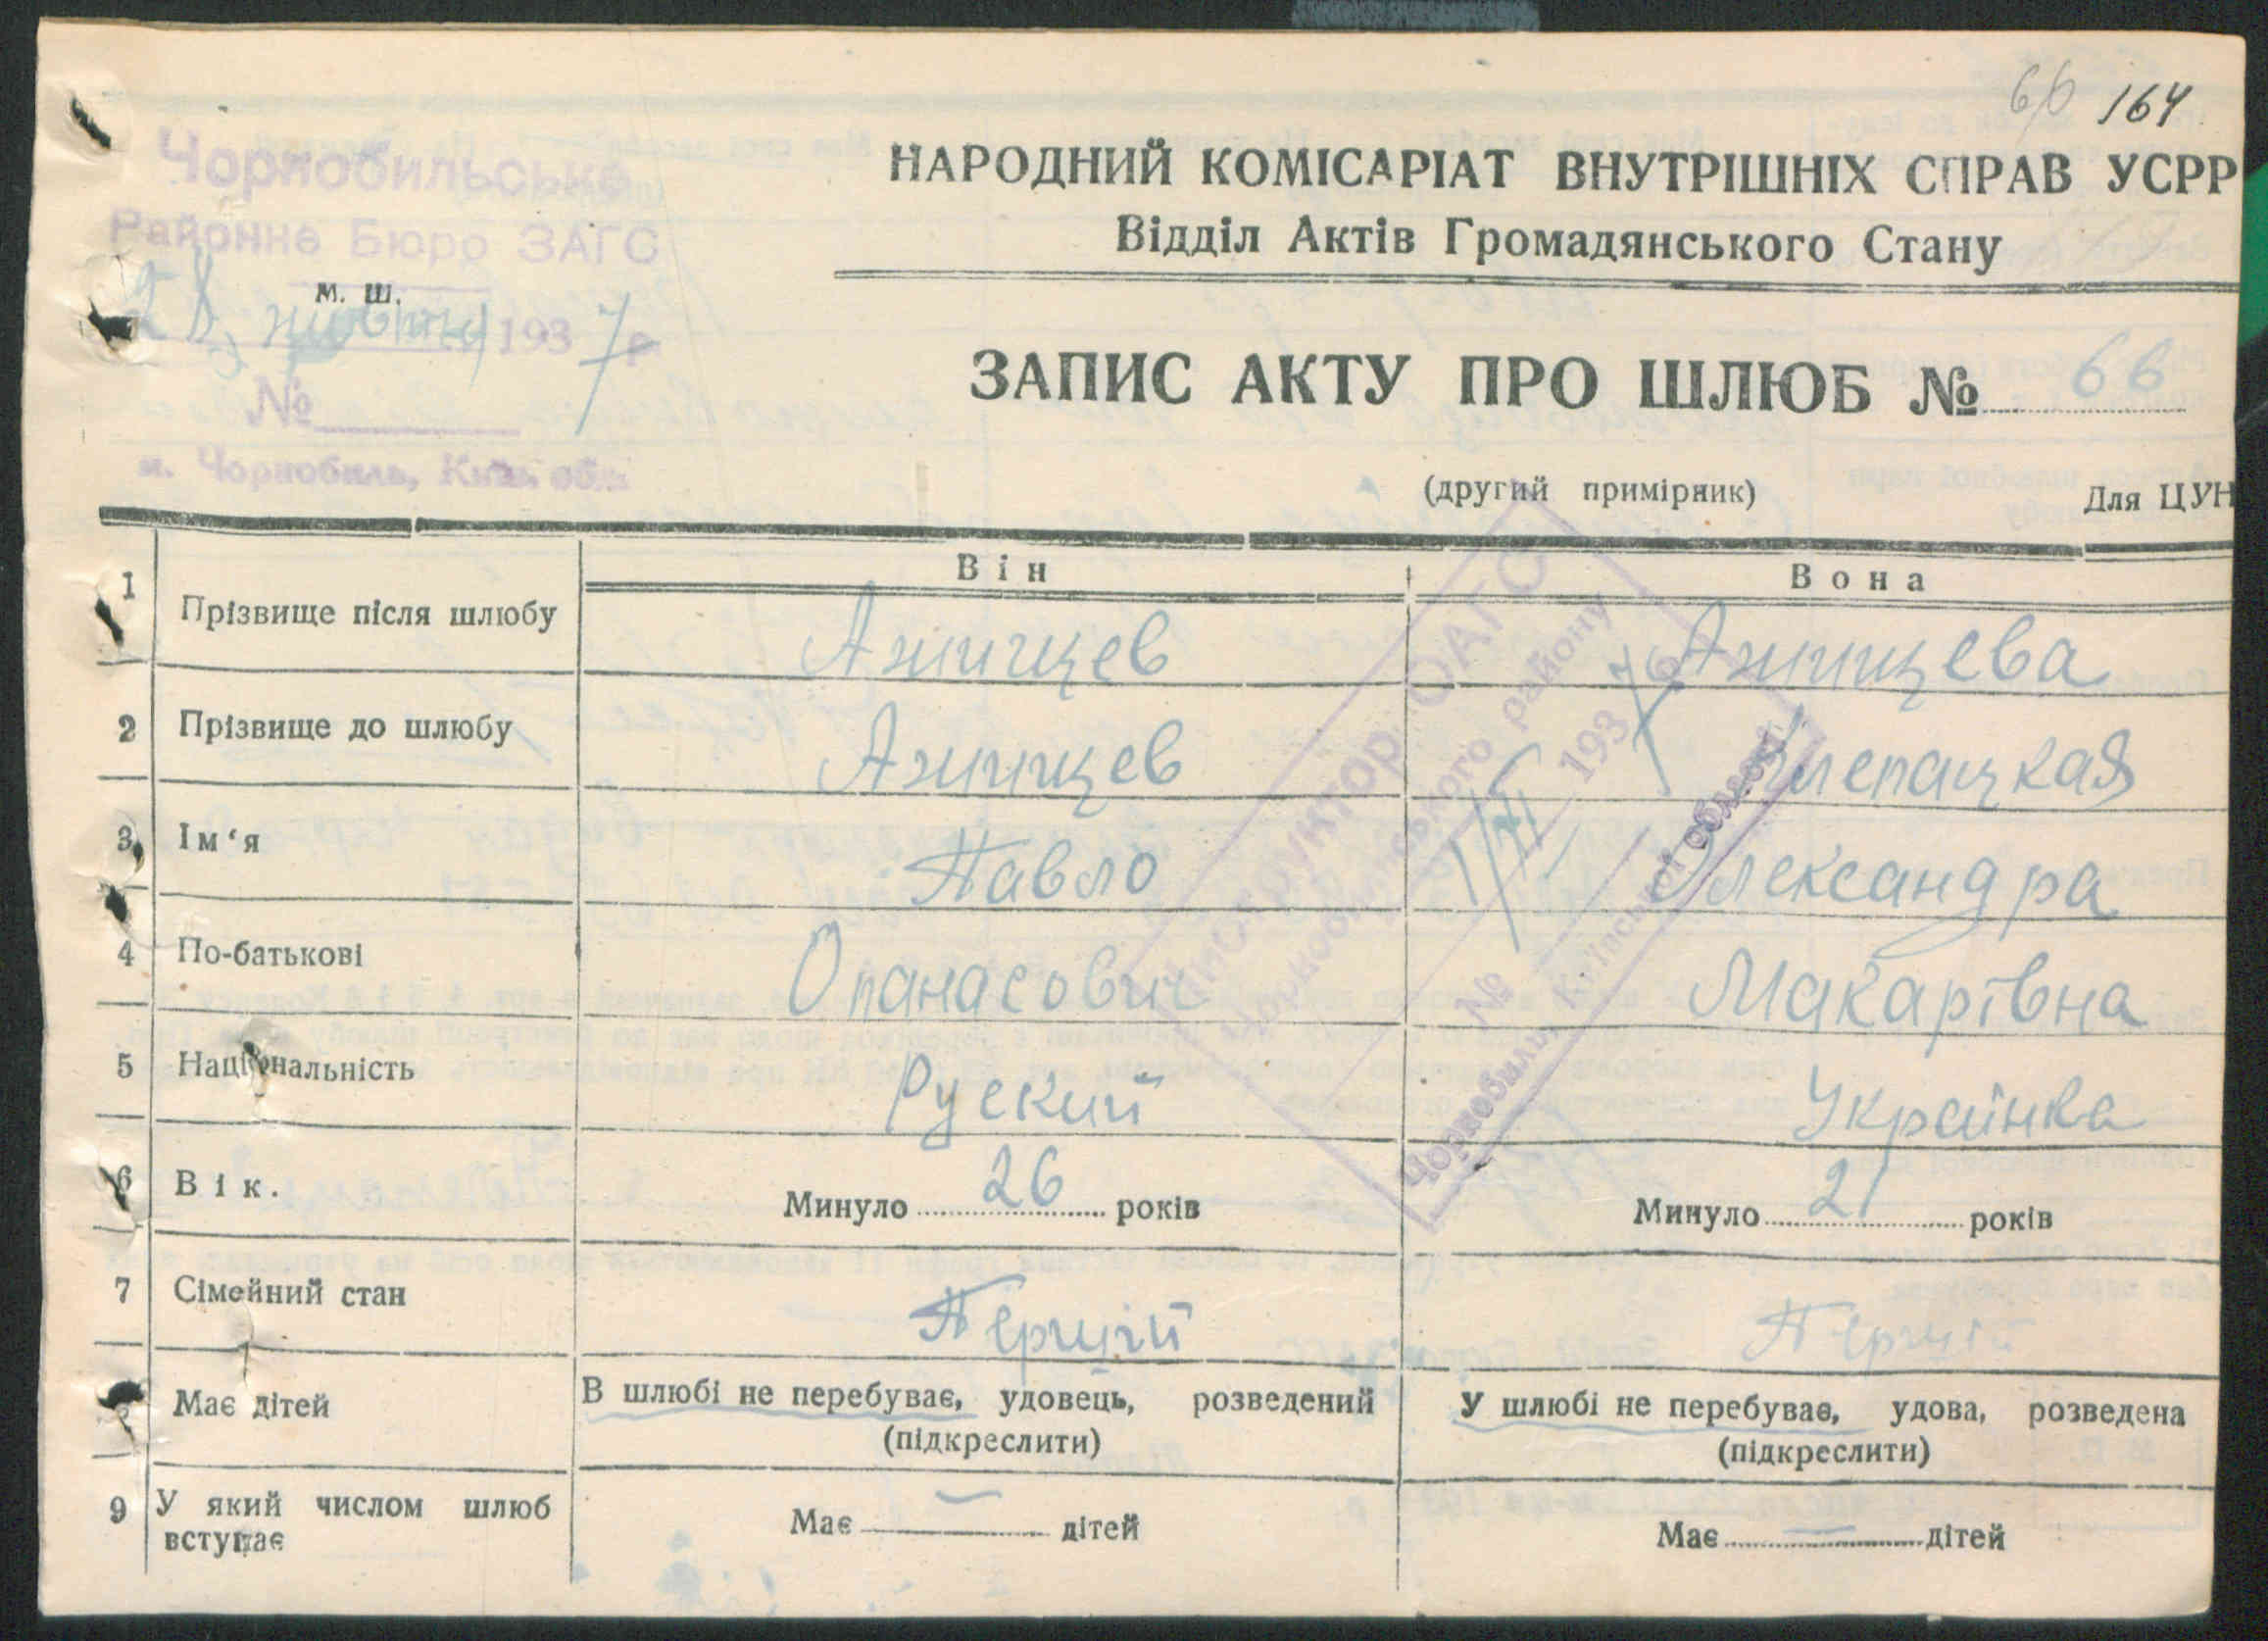 66 164
Чорнобильське
Районне Бюро ЗАГС
м. ш.
28 жовтня 1937 р.
№
м. Чорнобиль, Київ. обл.
НАРОДНИЙ КОМІСАРІАТ ВНУТРІШНІХ СПРАВ УСРР
Відділ Актів Громадянського Стану
ЗАПИС АКТУ ПРО ШЛЮБ № 66
(другий примірник) Для ЦУН
Він Вона
1 Прізвище після шлюбу Анищев Анищева
2 Прізвище до шлюбу Анищев
3 Ім‘я Павло Олександра
4 По-батькові Опанасович Макарівна
5 Національність Руский Українка
6 Вік. Минуло 26 років Минуло 21 років
7 Сімейний стан Перший Перший
8 Має дітей В шлюбі не перебуває, удовець, розведений У шлюбі не перебуває, удова, розведена
(підкреслити) (підкреслити)
9 У який числом шлюб вступає Має — дітей Має — дітей
Інструктор ОАГС
Чорнобильського району
193 7
№
Чорнобиль, Київської області